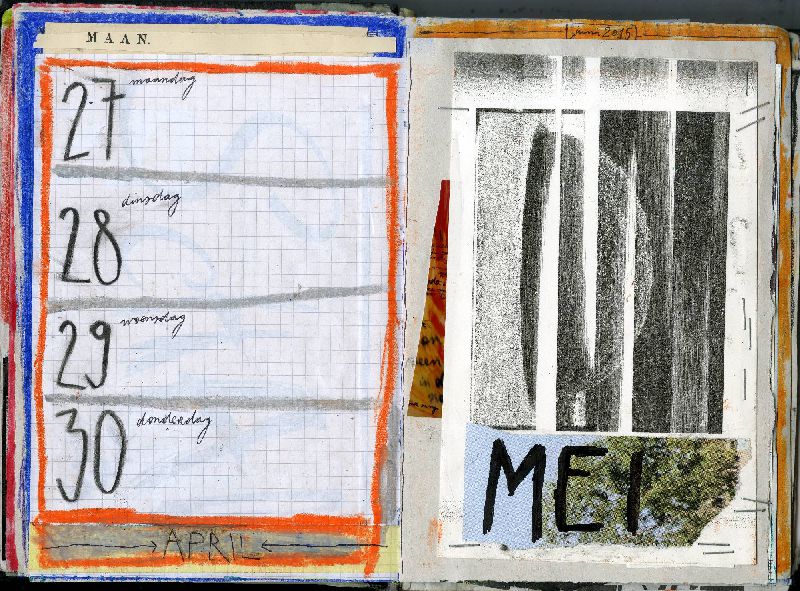 MAAN.
27 maandag
28 dinsdag
29 woensdag
30 donderdag
APRIL
MEI